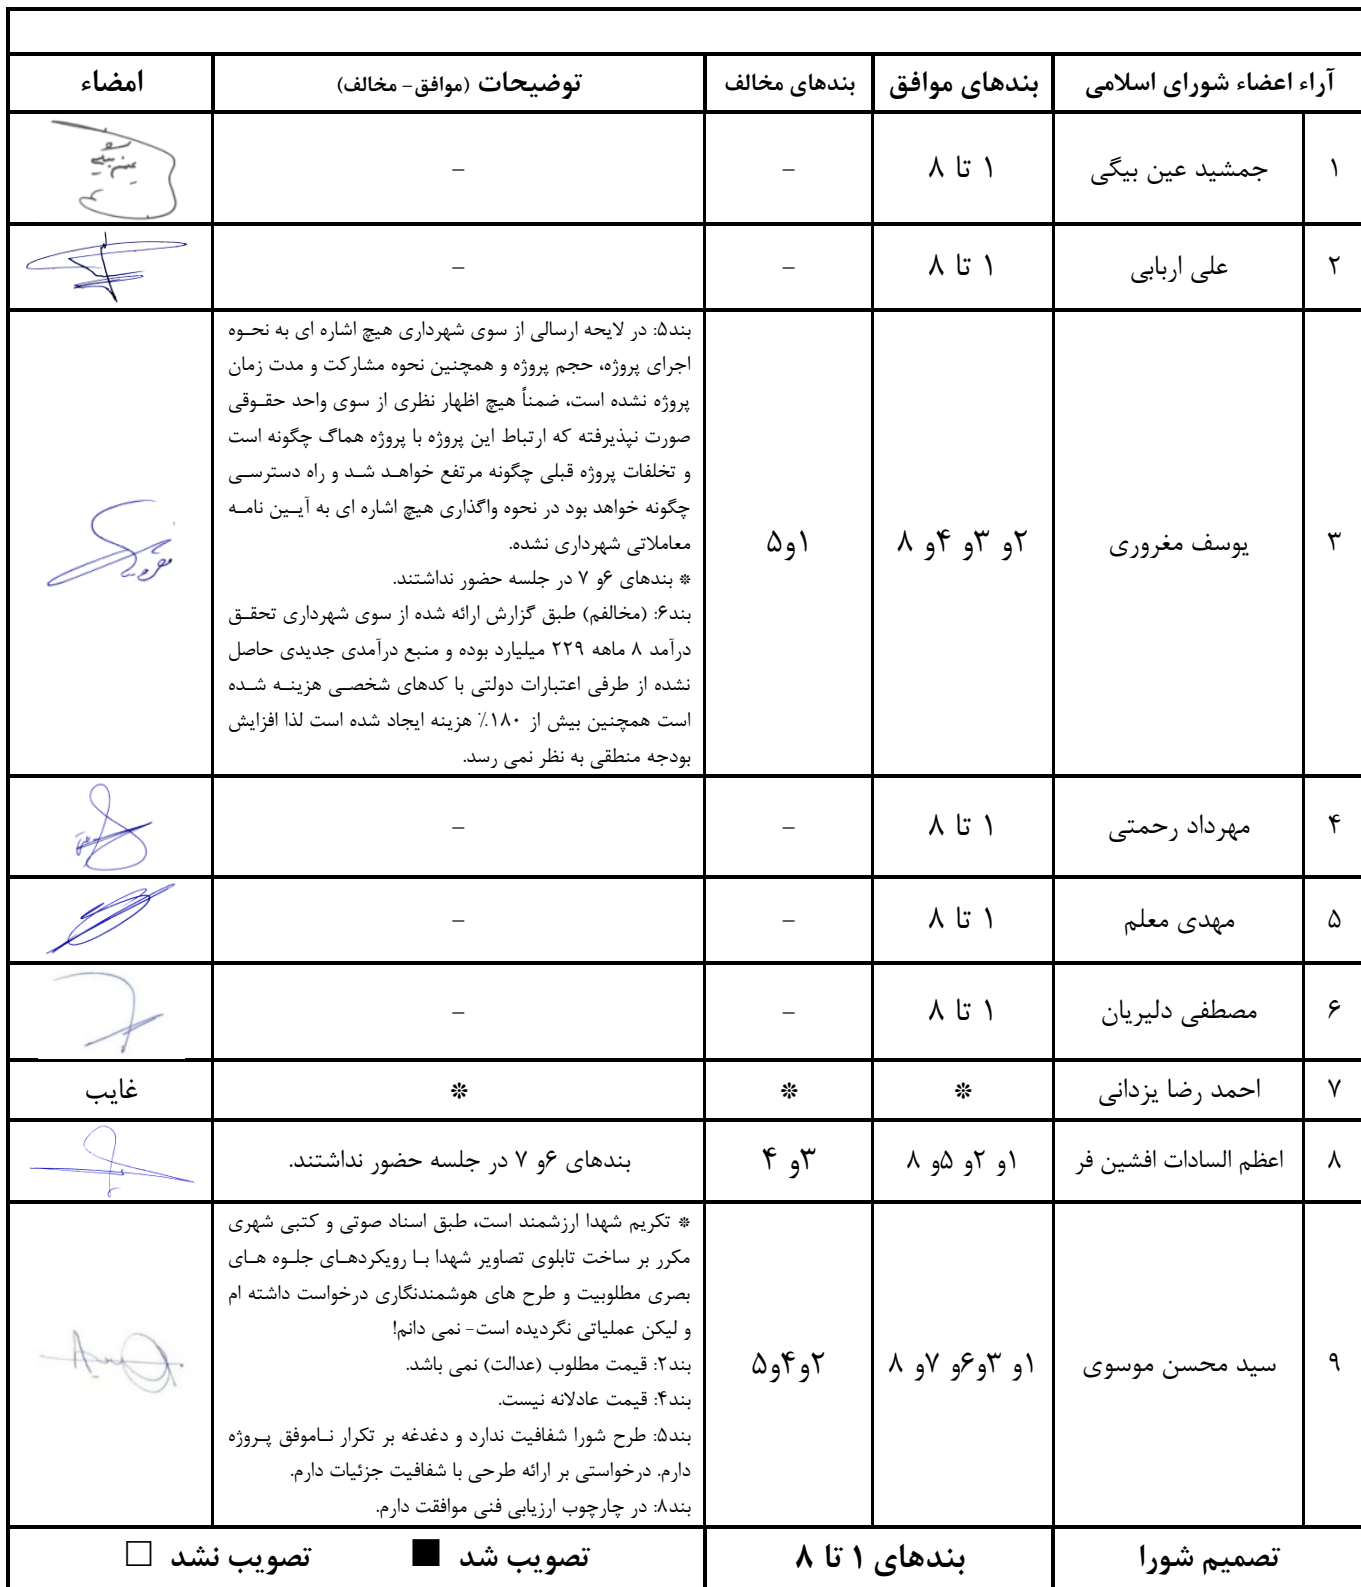 آراء اعضاء شورای اسلامی	بندهای موافق	بندهای مخالف	توضیحات (موافق- مخالف)	امضاء
۱	جمشید عین بیگی	۱ تا ۸	–	–
۲	علی اربابی	۱ تا ۸	–	–
۳	یوسف مغروری	۲و ۳و ۴و ۸	۱و۵
بند۵: در لایحه ارسالی از سوی شهرداری هیچ اشاره ای به نحـوه
اجرای پروژه، حجم پروژه و همچنین نحوه مشارکت و مدت زمان
پروژه نشده است، ضمناً هیچ اظهار نظری از سوی واحد حقـوقی
صورت نپذیرفته که ارتباط این پروژه با پروژه هماگ چگونه است
و تخلفات پروژه قبلی چگونه مرتفع خواهـد شـد و راه دسترسـی
چگونه خواهد بود در نحوه واگذاری هیچ اشاره ای به آیـین نامـه
معاملاتی شهرداری نشده.
* بندهای ۶و ۷ در جلسه حضور نداشتند.
بند۶: (مخالفم) طبق گزارش ارائه شده از سوی شهرداری تحقـق
درآمد ۸ ماهه ۲۲۹ میلیارد بوده و منبع درآمدی جدیدی حاصل
نشده از طرفی اعتبارات دولتی با کدهای شخصـی هزینـه شـده
است همچنین بیش از ۱۸۰٪ هزینه ایجاد شده است لذا افزایش
بودجه منطقی به نظر نمی رسد.
۴	مهرداد رحمتی	۱ تا ۸	–	–
۵	مهدی معلم	۱ تا ۸	–	–
۶	مصطفی دلیریان	۱ تا ۸	–	–
۷	احمد رضا یزدانی	*	*	*	غایب
۸	اعظم السادات افشین فر	۱و ۲و ۵و ۸	۳و ۴	بندهای ۶و ۷ در جلسه حضور نداشتند.
۹	سید محسن موسوی	۱و ۳و۶و ۷و ۸	۲و۴و۵
* تکریم شهدا ارزشمند است، طبق اسناد صوتی و کتبی شهری
مکرر بر ساخت تابلوی تصاویر شهدا بـا رویکردهـای جلـوه هـای
بصری مطلوبیت و طرح های هوشمندنگاری درخواست داشته ام
و لیکن عملیاتی نگردیده است- نمی دانم!
بند۲: قیمت مطلوب (عدالت) نمی باشد.
بند۴: قیمت عادلانه نیست.
بند۵: طرح شورا شفافیت ندارد و دغدغه بر تکرار نـاموفق پـروژه
دارم. درخواستی بر ارائه طرحی با شفافیت جزئیات دارم.
بند۸: در چارچوب ارزیابی فنی موافقت دارم.
تصمیم شورا	بندهای ۱ تا ۸	تصویب شد ■	تصویب نشد □